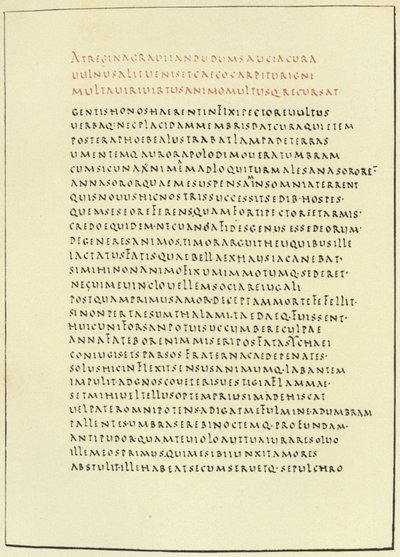 ATREGINAGRAUIIANDUDUMSAUCIACURA
UULNUSALITUENISETCAECOCARPITURIGNI
MULTAUIRIUIRTUSANIMOMULTUSQ·RECURSAT
GENTISHONOSHAERENTINFIXIPECTOREUULTUS
UERBAQ·NECPLACIDAMMEMBRISDATCURAQUIETEM
POSTERAPHOEBEALUSTRABATLAMPADETERRAS
UMENTEMQ·AURORAPOLODIMOUERATUMBRAM
CUMSICUNAXNIMEMADLOQUITURMALESANASOROREM
ANNASORORQUAEMESUSPENSAMINSOMNIATERRENT
QUISNOUUSHICNOSTRISSUCCESSITSEDIB·HOSPES·
QUEMSESEOREFERENS,QUAMFORTIPECTOREETARMIS·
CREDOEQUIDEM·NECUANAFIDESGENUSESSEDEORUM·
DEGENERESANIMOS,TIMORARGUITHEUQUIBUSILLE
IACTATUSFATIS,QUAEBELLAEXHAUSTACANEBAT·
SIMIHINONANIMOFIXUMIMMOTUMQ·SEDERET·
NECUIMEUINCLOUELLEMSOCIAREIUGALI
POSTQUAMPRIMUSAMOR·DECEPTAMMORTEFEFELLIT·
SINONPERTAESUMTHALAMI,TAEDAEQ·FUISSENT·
HUICUNIFORSANPOTUISUCCUMBERECULPAE
ANNAFATEBORENIMMISERIPOSTFATASYCHAEI
CONIUGISETSPARSOSFRATERNACAEDEPENATES·
SOLUSHICINFLEXITSENSUSANIMUMQ·LABANTEM
IMPULIT·ADGNOSCOUETERISUESTIGIAFLAMMAE·
SETMIHIUELTELLUSOPTEMPRIUSIMADEHISCAT
UELPATEROMNIPOTENS·ADIGATMEFULMINE·ADUMBRAM
PALLENTES·UMBRASEREBINOCTEMQ·PROFUNDAM·
ANTIPUDORQUAMTEUIOLOAUTTUAIURARESOLUO
ILLEMEOSPRIMUS,QUIMESIBIIUNXITAMORES
ABSTULIT·ILLEHABEATSECUMSERUETQ·SEPULCHRO